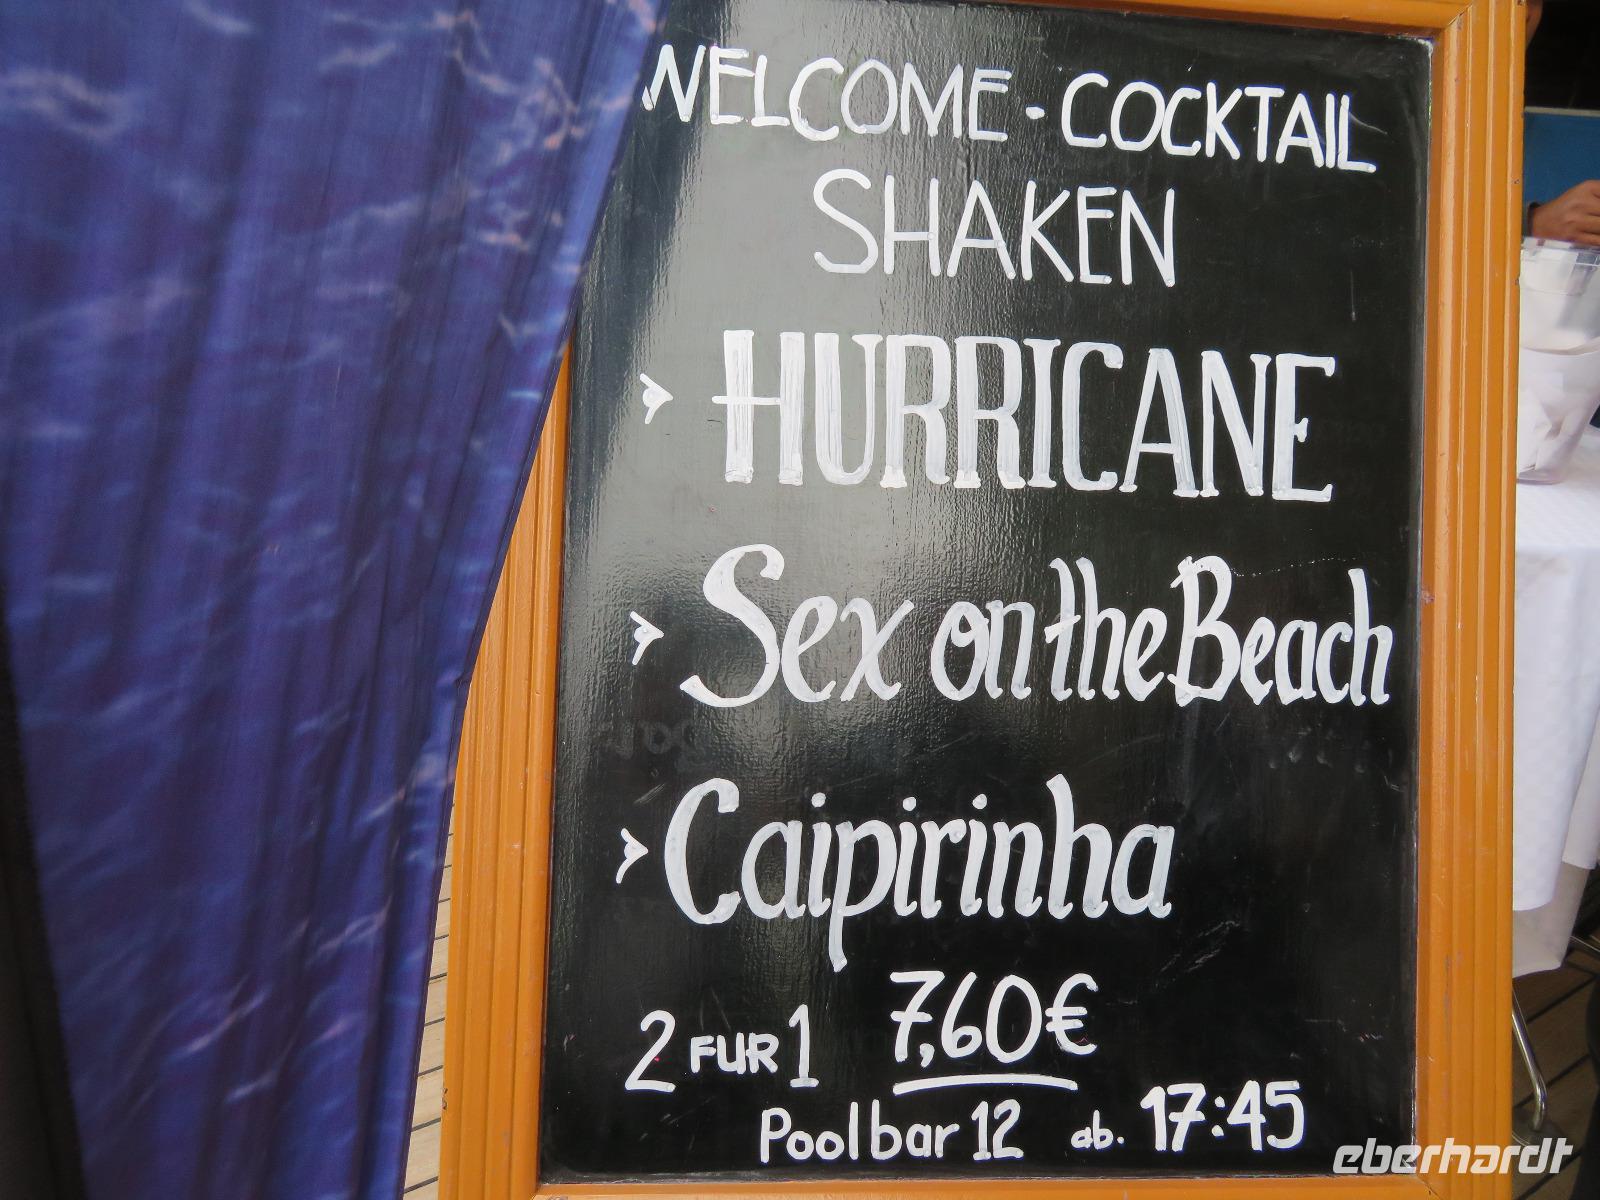 WELCOME - COCKTAIL
SHAKEN
> HURRICANE
> Sex on the Beach
> Caipirinha
2 FUR 1 7,60€
Poolbar 12 ab. 17:45
eberhardt